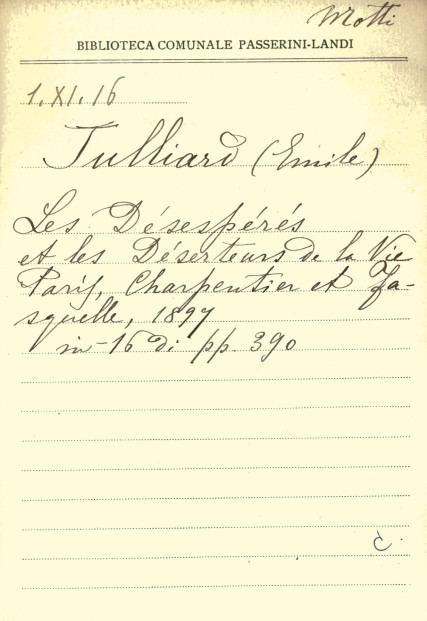 Motti
BIBLIOTECA COMUNALE PASSERINI-LANDI
1.XI.16
Julliard (Emile)
Les Désespérés
et les Déserteurs de la Vie
Paris, Charpentier et Fa-
squelle, 1897
in-16 di pp. 390
C.